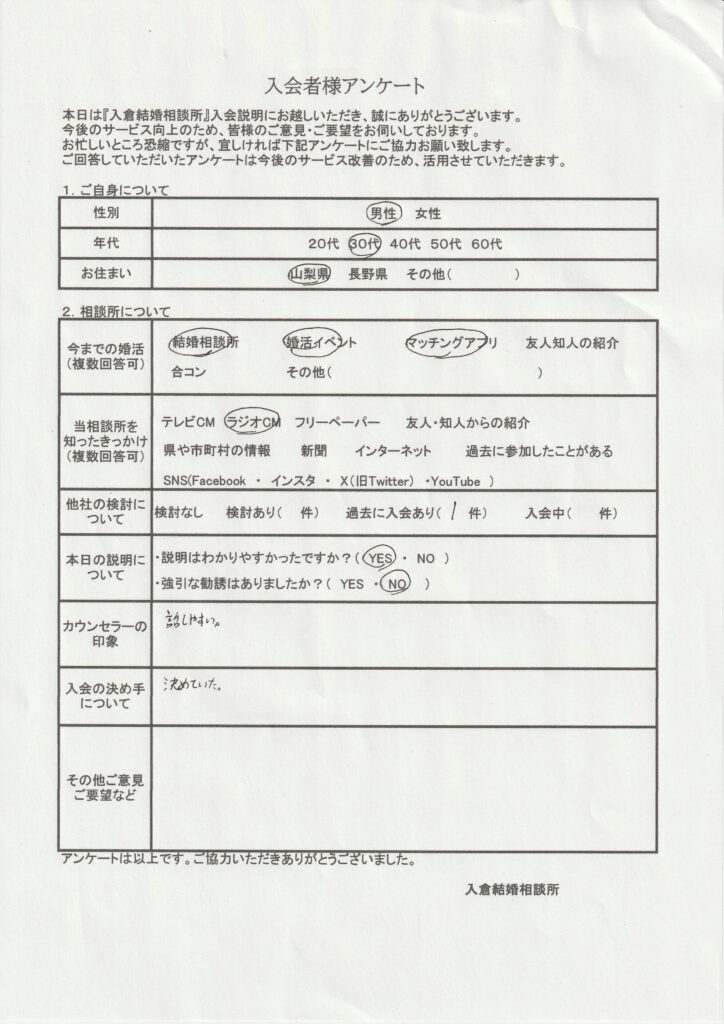 入会者様アンケート
本日は『入倉結婚相談所』入会説明にお越しいただき、誠にありがとうございます。
今後のサービス向上のため、皆様のご意見・ご要望をお伺いしております。
お忙しいところ恐縮ですが、宜しければ下記アンケートにご協力お願い致します。
ご回答していただいたアンケートは今後のサービス改善のため、活用させていただきます。
1. ご自身について
性別 男性 女性
年代 20代 30代 40代 50代 60代
お住まい 山梨県 長野県 その他( )
2. 相談所について
今までの婚活
(複数回答可)
結婚相談所 婚活イベント マッチングアプリ 友人知人の紹介
合コン その他( )
当相談所を
知ったきっかけ
(複数回答可)
テレビCM ラジオCM フリーペーパー 友人・知人からの紹介
県や市町村の情報 新聞 インターネット 過去に参加したことがある
SNS(Facebook ・ インスタ ・ X(旧Twitter) ・YouTube )
他社の検討に
ついて
検討なし 検討あり( 件) 過去に入会あり( 1 件) 入会中( 件)
本日の説明に
ついて
・説明はわかりやすかったですか？( YES ・ NO )
・強引な勧誘はありましたか？( YES ・ NO )
カウンセラーの
印象
話しやすい。
入会の決め手
について
決めていた。
その他ご意見
ご要望など
アンケートは以上です。ご協力いただきありがとうございました。
入倉結婚相談所